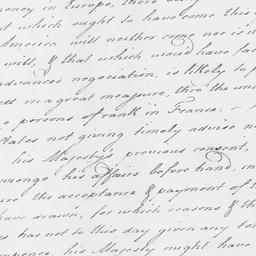 oney in Europe, there
t which ought to have come this
America will neither come nor is it
will, & that which would have fac
advanced negociation, is likely to
ess in a great measure, thro' the
e persons of rank in France. -
tates not giving timely advise n
his Majesty's previous consent,
rrange his affairs before hand, in
ure the acceptance & payment of th
have drawn; for which reasons & th
s has not to this day given any
mpence, his Majesty might have